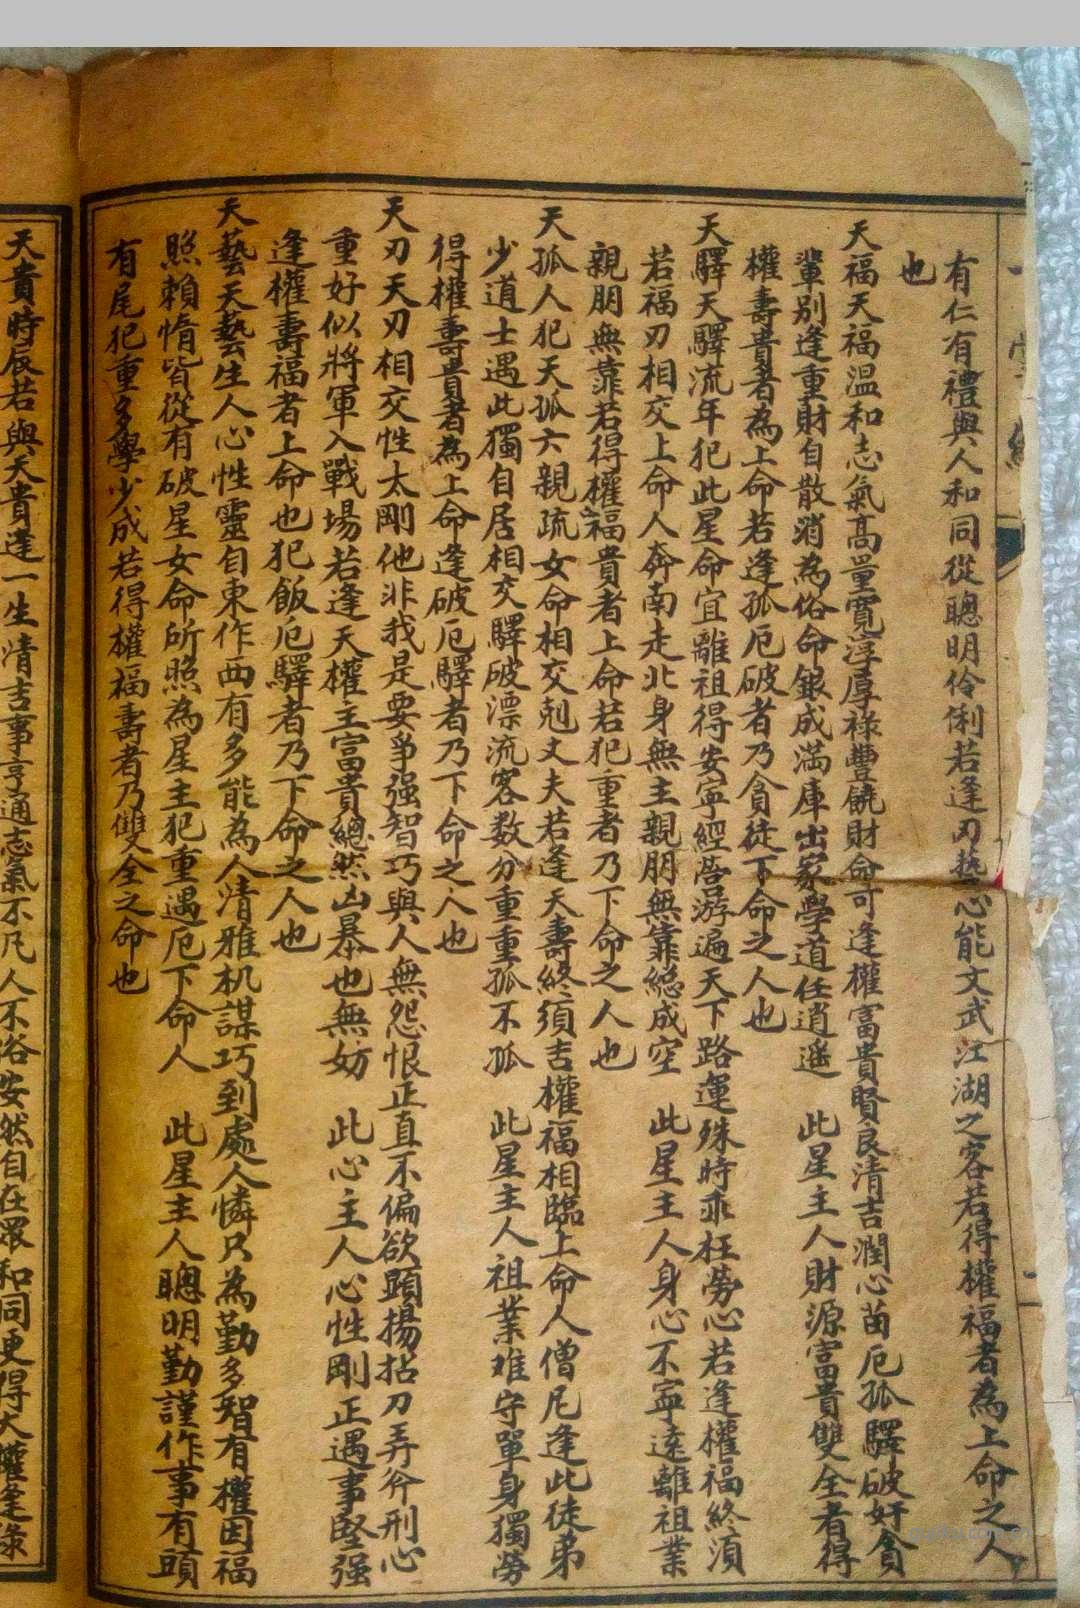 有仁有禮與人和同從聰明伶俐若逢刃藝心能文武江湖之客若得權福者為上命之人
也
天福天福温和志氣高量寬淳厚祿豐饒財命可逢權富貴賢良清吉潤心苗厄孤驛破奸貪
輩別逢重財自散消為俗命銀成滿庫出家學道任逍遥　此星主人財源富貴雙全者得
權壽貴者為上命若逢孤厄破者乃貪徒下命之人也
天驛天驛流年犯此星命宜離祖得安寧經營游遍天下路運殊時乖枉勞心若逢權福終須
若福刃相交上命人奔南走北身無主親朋無靠總成空　此星主人身心不寧遠離祖業
親朋無靠若得權福貴者上命若犯重者乃下命之人也
天孤人犯天孤六親疏女命相交剋丈夫若逢天壽終須吉權福相臨上命人僧尼逢此徒弟
少道士遇此獨自居相交驛破漂流客数分重重孤不孤　此星主人祖業难守單身獨勞
得權壽貴者為上命逢破厄驛者乃下命之人也
天刃天刃相交性太剛他非我是要爭强智巧與人無怨恨正直不偏欲顕揚拈刀弄斧刑心
重好似將軍入戰場若逢天權主富貴總然凶暴也無妨　此心主人心性剛正遇事堅强
逢權壽福者上命也犯飯厄驛者乃下命之人也
天藝天藝生人心性靈自東作西有多能為人清雅机謀巧到處人憐只為勤多智有權因福
照賴惰皆從有破星女命所照為星主犯重遇厄下命人　此星主人聰明勤謹作事有頭
有尾犯重多學少成若得權福壽者乃雙全之命也
天貴時辰若與天貴逢一生清吉事亨通志氣不凡人不俗安然自在眾和同更得天權逢祿